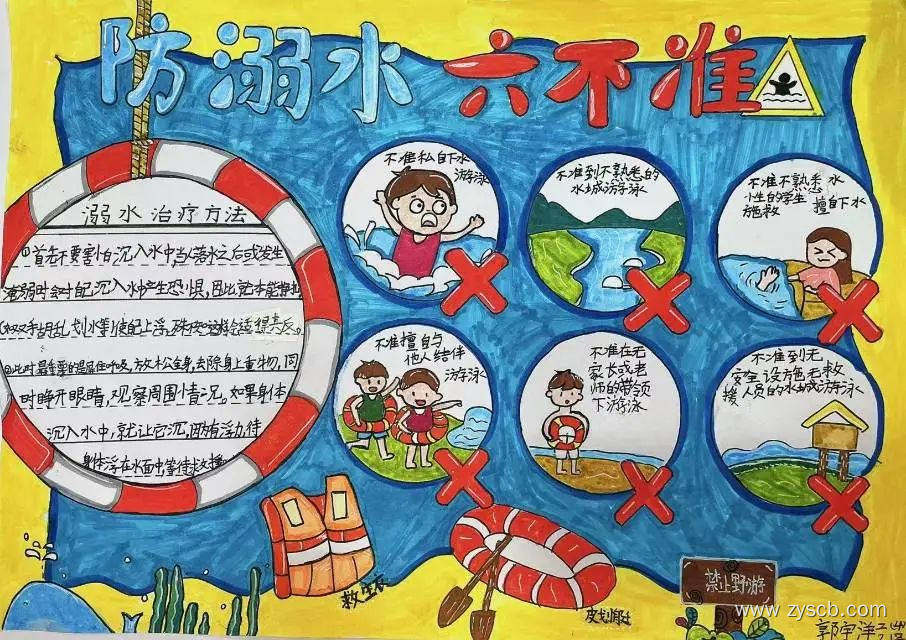 防溺水 六不准
溺水治疗方法
①首先不要害怕沉入水中,当落水之后或发生
淹溺时会对自己沉入水中产生恐惧,因此就本能
双手胡乱划水
此时最重要的是屏住呼吸,放松全身,去除身上重物,同
时睁开眼睛,观察周围情况,如果身体
沉入水中,就让它沉,因为有浮力,待
身体浮在水面中,等待救援
不准私自下水
游泳
不准到不熟悉的
水域游泳
不准不熟悉水
性的学生 擅自下水
施救
不准擅自与
他人结伴
游泳
不准在无
家长或老
师的带领
下游泳
不准到无
安全设施无救
援人员的水域游泳
救生衣
皮划艇
禁止野游
www.zyscb.com